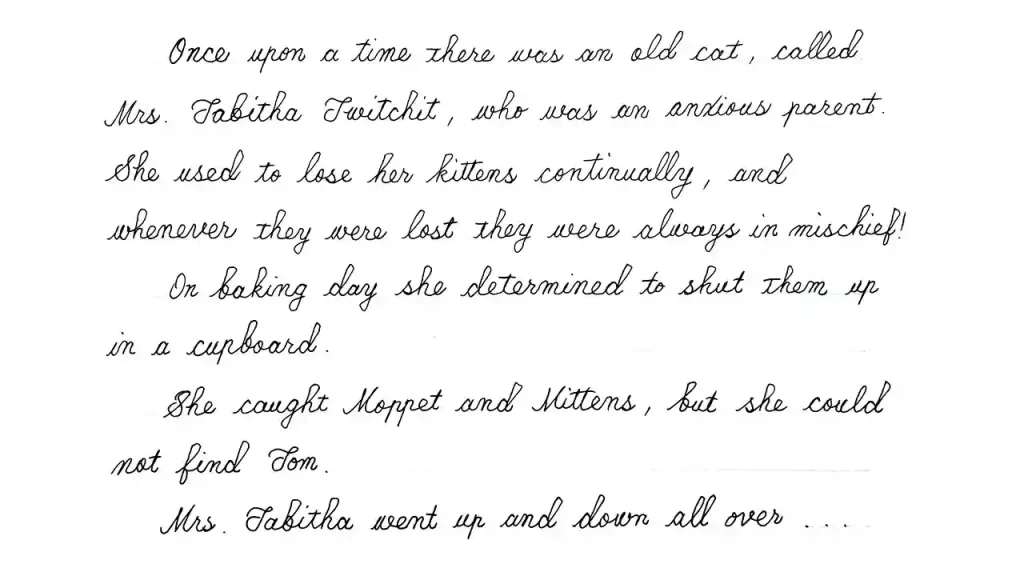 Once upon a time there was an old cat, called
Mrs. Tabitha Twitchit, who was an anxious parent.
She used to lose her kittens continually, and
whenever they were lost they were always in mischief!
On baking day she determined to shut them up
in a cupboard.
She caught Moppet and Mittens, but she could
not find Tom.
Mrs. Tabitha went up and down all over ....